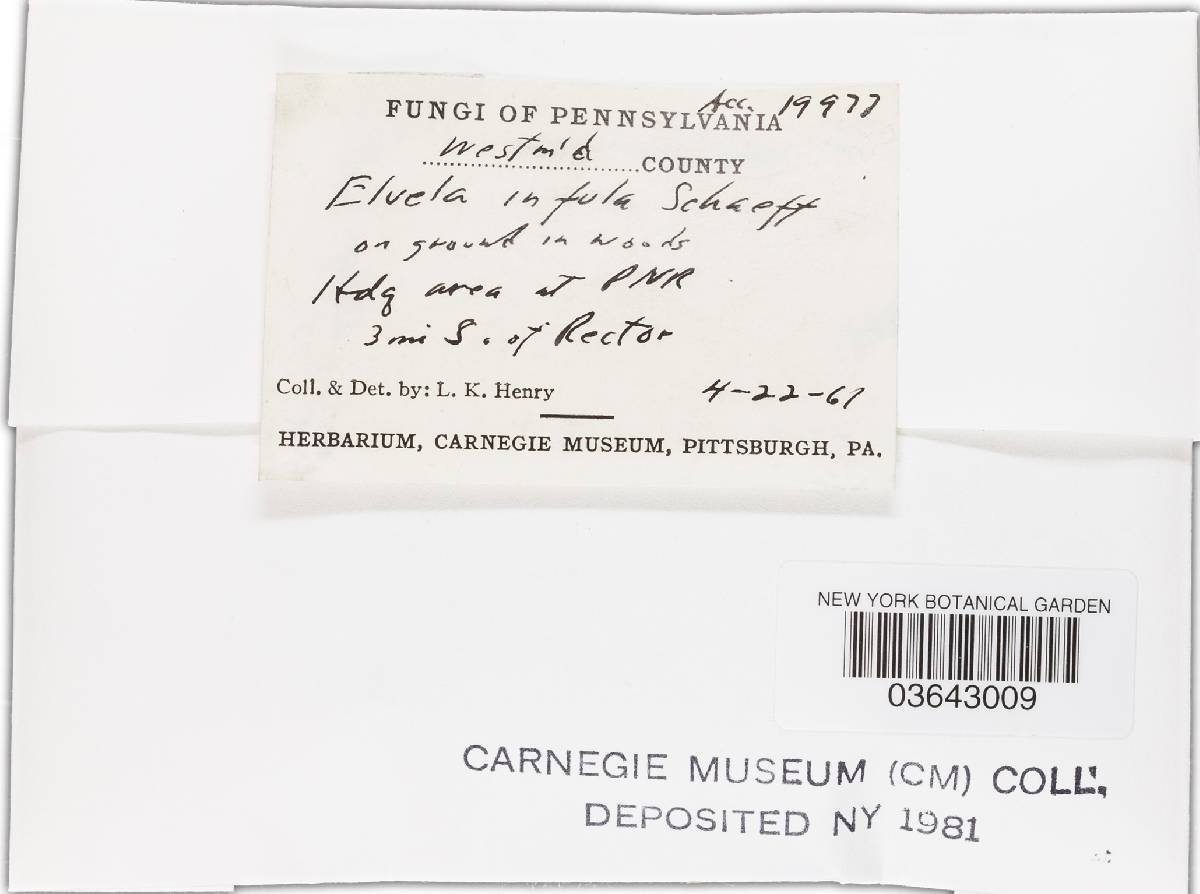 Acc. 19977
FUNGI OF PENNSYLVANIA
Westm'd COUNTY
Elvela infula Schaeff
on ground in woods
Hdq area at PNR
3 mi S. of Rector
Coll. & Det. by: L. K. Henry 4-22-61
HERBARIUM, CARNEGIE MUSEUM, PITTSBURGH, PA.
NEW YORK BOTANICAL GARDEN
03643009
CARNEGIE MUSEUM (CM) COLL.
DEPOSITED NY 1981